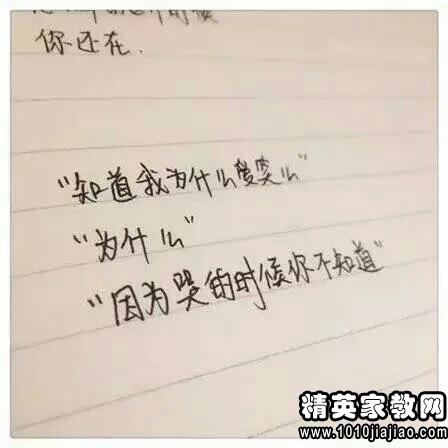 你还在.
“知道我为什么爱笑么”
“为什么”
“因为哭的时候你不知道”
精英家教网
www.1010jiajiao.com